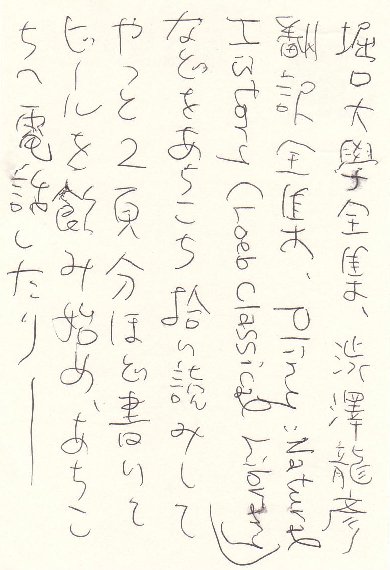 堀口大學全集、渋澤龍彦
飜訳全集、Pliny:Natural
History (Loeb Classical Library)
などをあちこち拾い読みして
やっと2頁分ほど書いて
ビールを飲み始め、あちこ
ちへ電話したり——